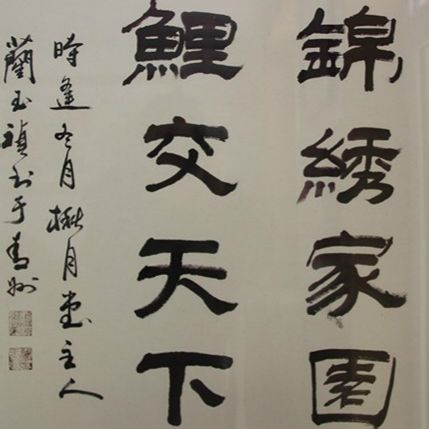 錦綉家園
鯉交天下
時逢冬月楸月堂主人
玉禎书于青州